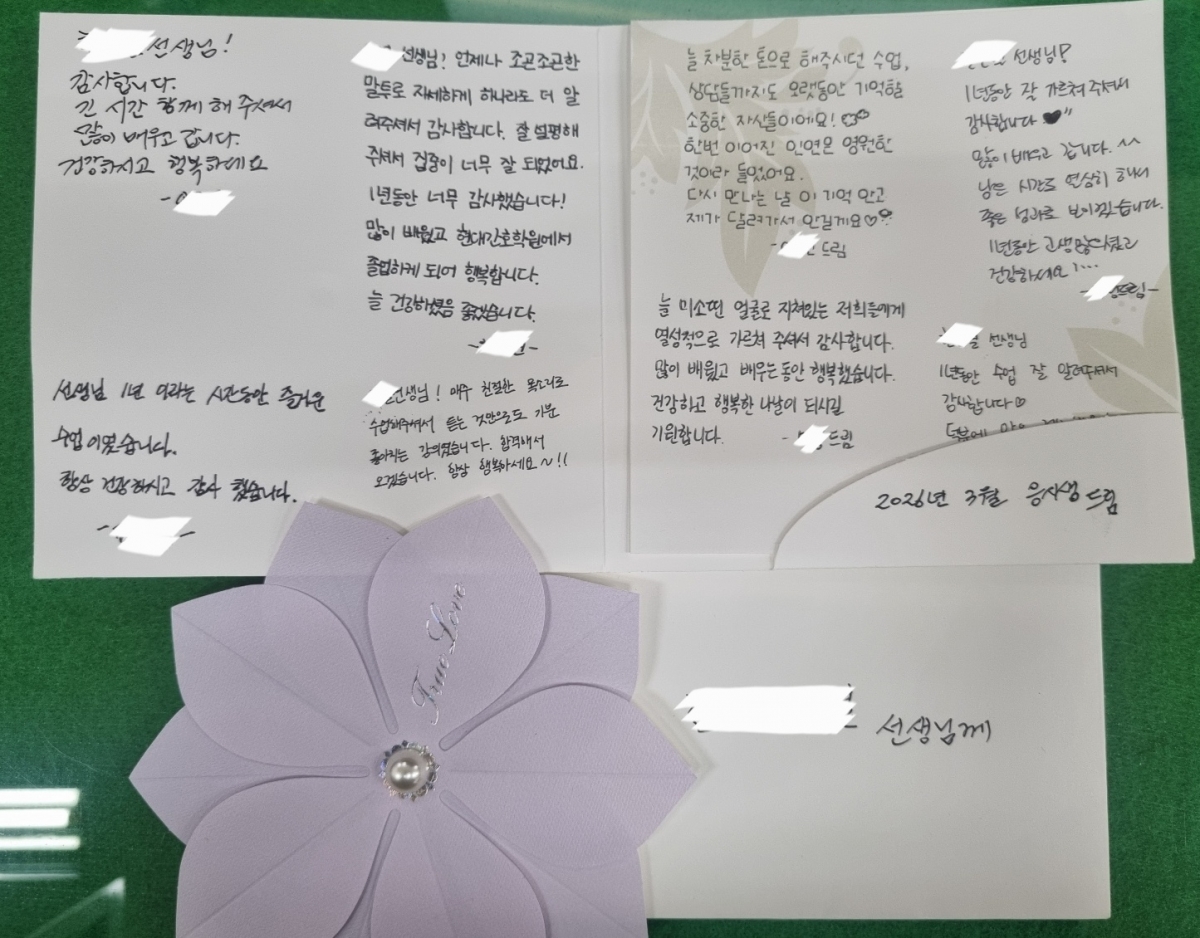 선생님!
감사합니다.
긴 시간 함께 해 주셔서
많이 배우고 갑니다.
건강하시고 행복하세요
선생님! 언제나 조곤조곤한
말투로 자세하게 하나라도 더 알
려주셔서 감사합니다. 잘 설명해
주셔서 집중이 너무 잘 되었어요.
1년동안 너무 감사했습니다!
많이 배웠고 현대간호학원에서
졸업하게 되어 행복합니다.
늘 건강하셨음 좋겠습니다.
선생님 1년 이라는 시간동안 즐거운
수업이였습니다.
항상 건강하시고 감사 했습니다.
선생님! 매우 친절한 목소리로
수업해주셔서 듣는 것만으로도 기분
좋아지는 강의였습니다. 합격해서
오겠습니다. 항상 행복하세요~!!
늘 차분한 톤으로 해주시던 수업,
상담들까지도 오랫동안 기억할
소중한 자산들이에요!
한번 이어진 인연은 영원한
것이라 들었어요.
다시 만나는 날 이 기억 안고
제가 달려가서 안길게요♡
드림
늘 미소띤 얼굴로 지쳐있는 저희들에게
열성적으로 가르쳐 주셔서 감사합니다.
많이 배웠고 배우는 동안 행복했습니다.
건강하고 행복한 나날이 되시길
기원합니다.
드림
선생님!
1년동안 잘 가르쳐 주셔서
감사합니다 ♥"
많이 배우고 갑니다. ^^
남은 시간도 열심히 해서
좋은 성과로 보이겠습니다.
1년동안 고생많으셨고
건강하세요!...
드림-
선생님
1년동안 수업 잘 알려주셔서
감사합니다♡
덕분에 많이
2026년 3월 응시생 드림
True Love
선생님께